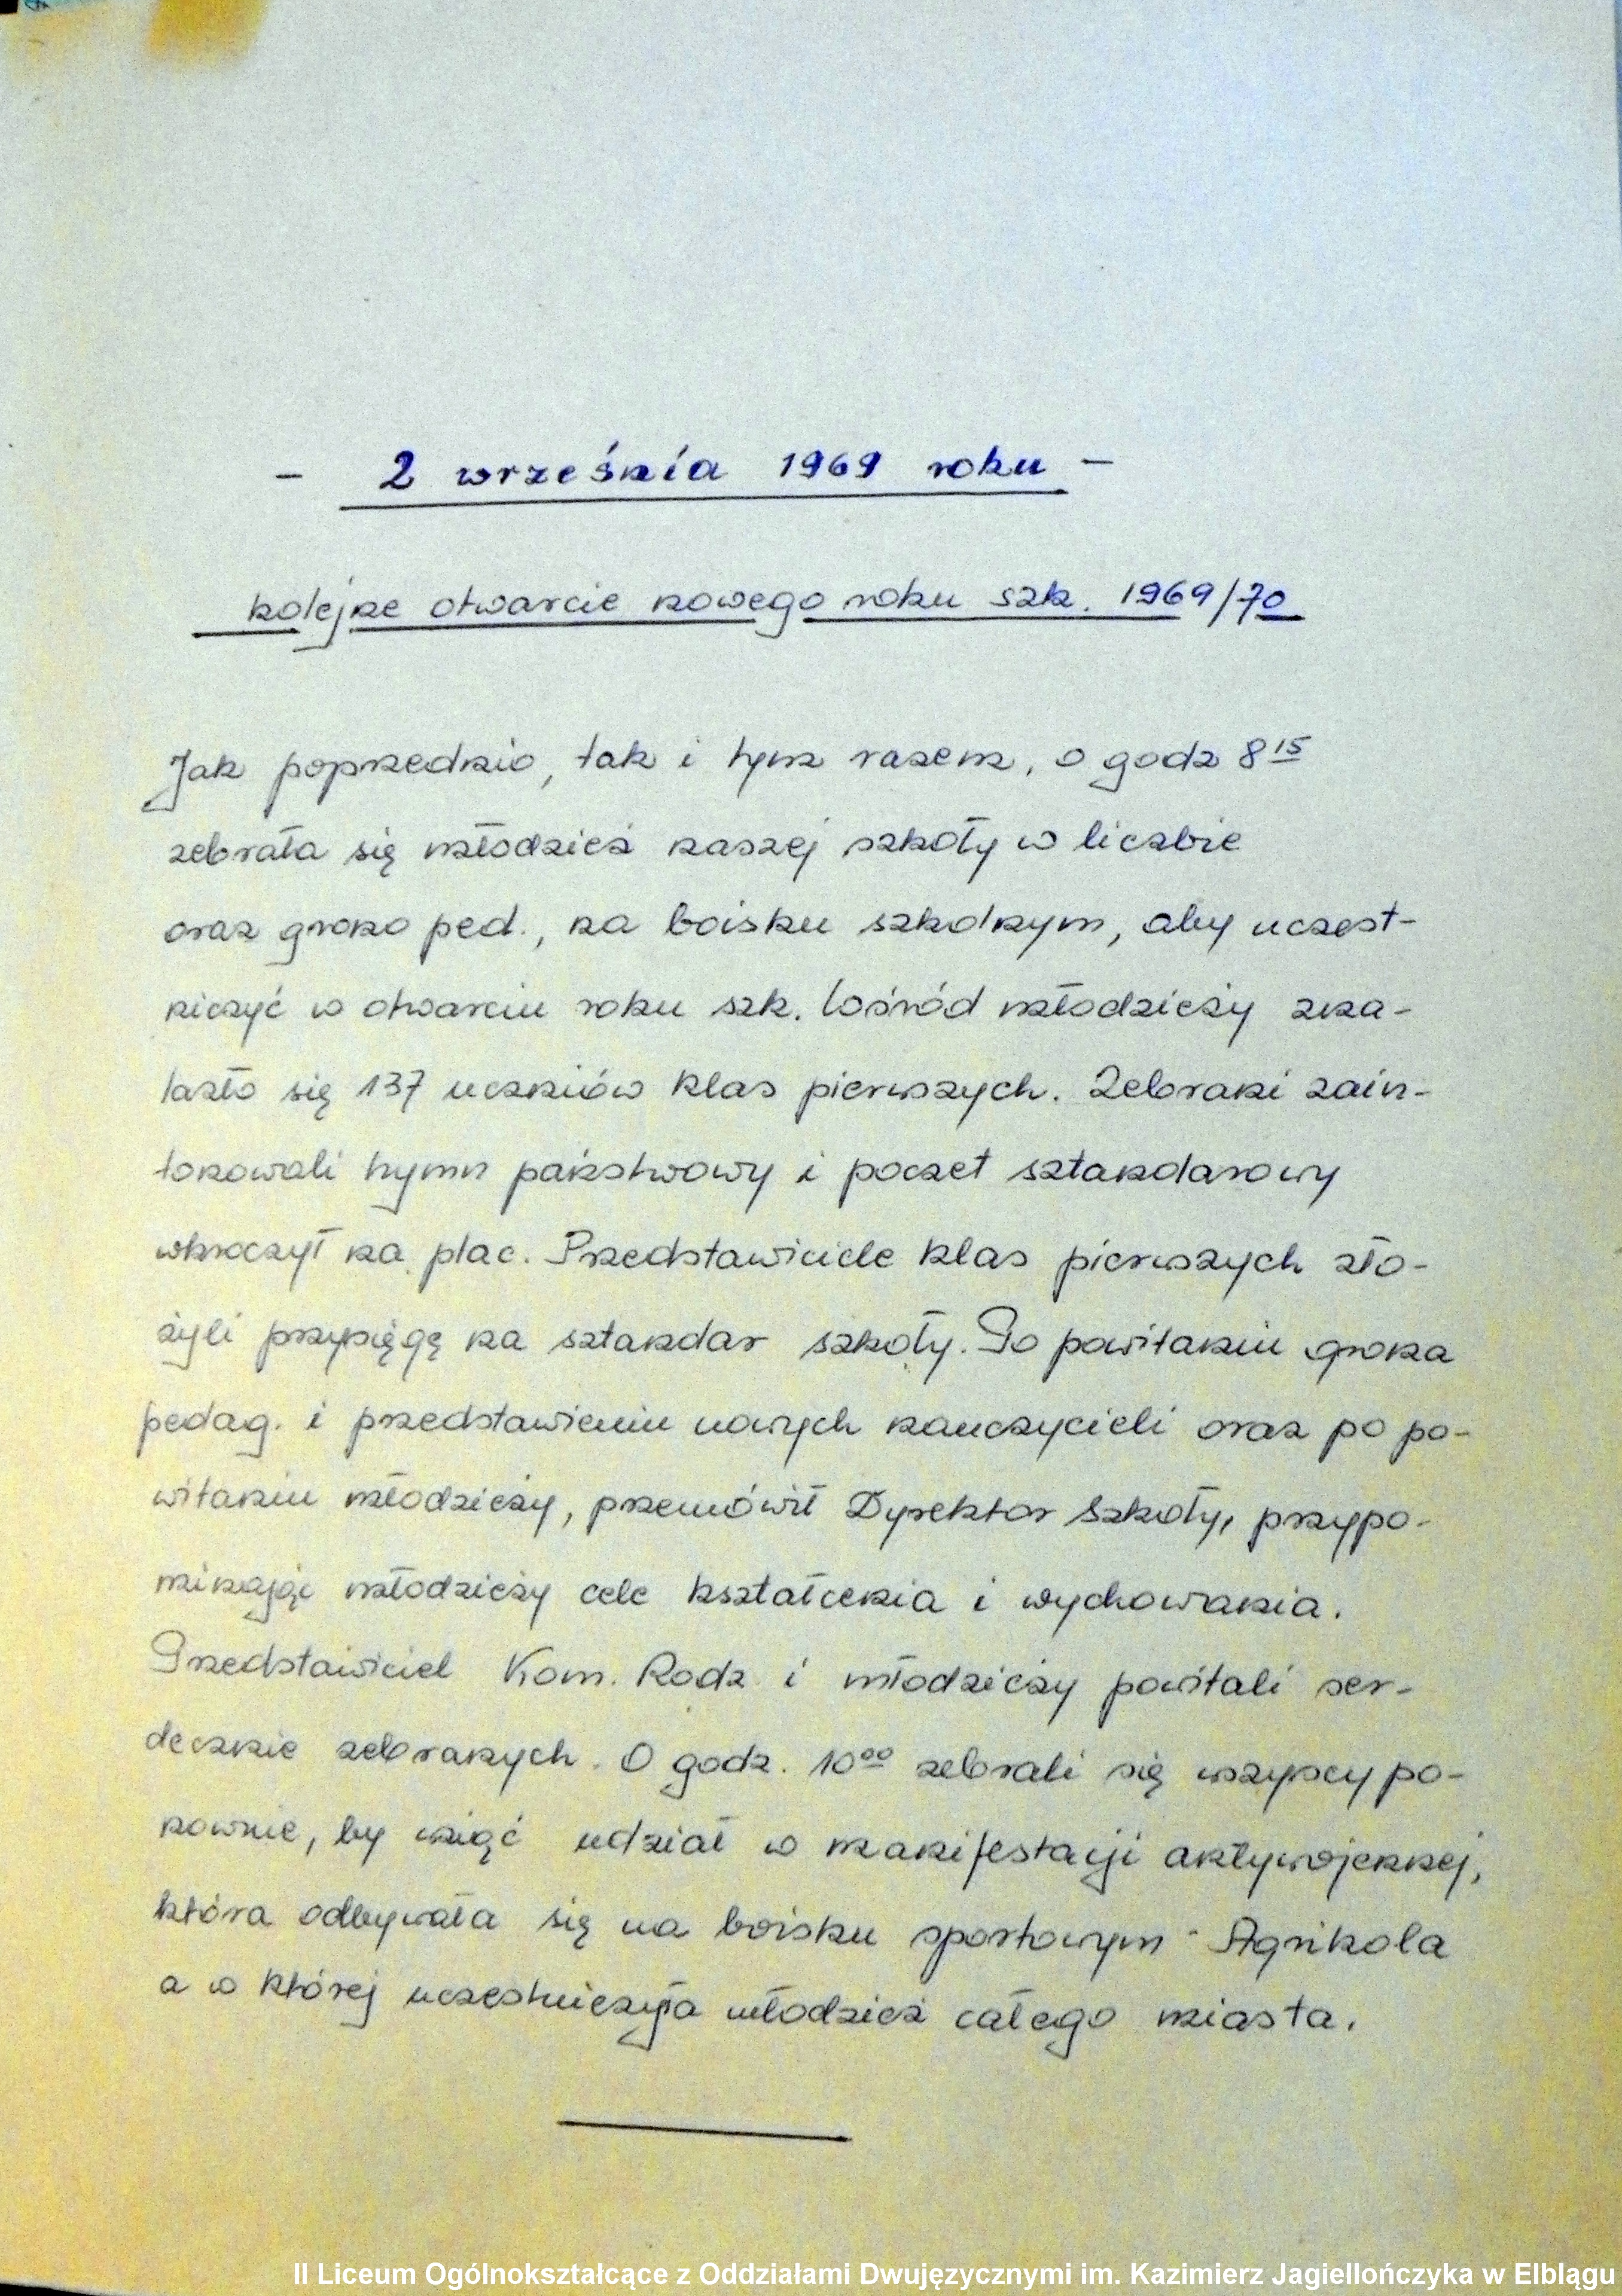 - 2 września 1969 roku -
kolejne otwarcie nowego roku szk. 1969/70
Jak poprzednio, tak i tym razem, o godz 8 15
zebrała się młodzież naszej szkoły w liczbie
oraz grono ped., na boisku szkolnym, aby uczest-
niczyć w otwarciu roku szk. Wśród młodzieży zna-
lazło się 137 uczniów klas pierwszych. Zebrani zain-
tonowali hymn państwowy i poczet sztandarowy
wkroczył na plac. Przedstawiciele klas pierwszych zło-
żyli przysięgę na sztandar szkoły. Po powitaniu grona
pedag. i przedstawieniu nowych nauczycieli oraz po po-
witaniu młodzieży, przemówił Dyrektor Szkoły, przypo-
minając młodzieży cele kształcenia i wychowania.
Przedstawiciel Kom. Rodz. i młodzieży powitali ser-
decznie zebranych. O godz. 10 00 zebrali się wszyscy po-
nownie, by wziąć udział w manifestacji antywojennej,
która odbywała się na boisku sportowym - Agrikola
a w której uczestniczyła młodzież całego miasta.
II Liceum Ogólnokształcące z Oddziałami Dwujęzycznymi im. Kazimierz Jagiellończyka w Elblągu